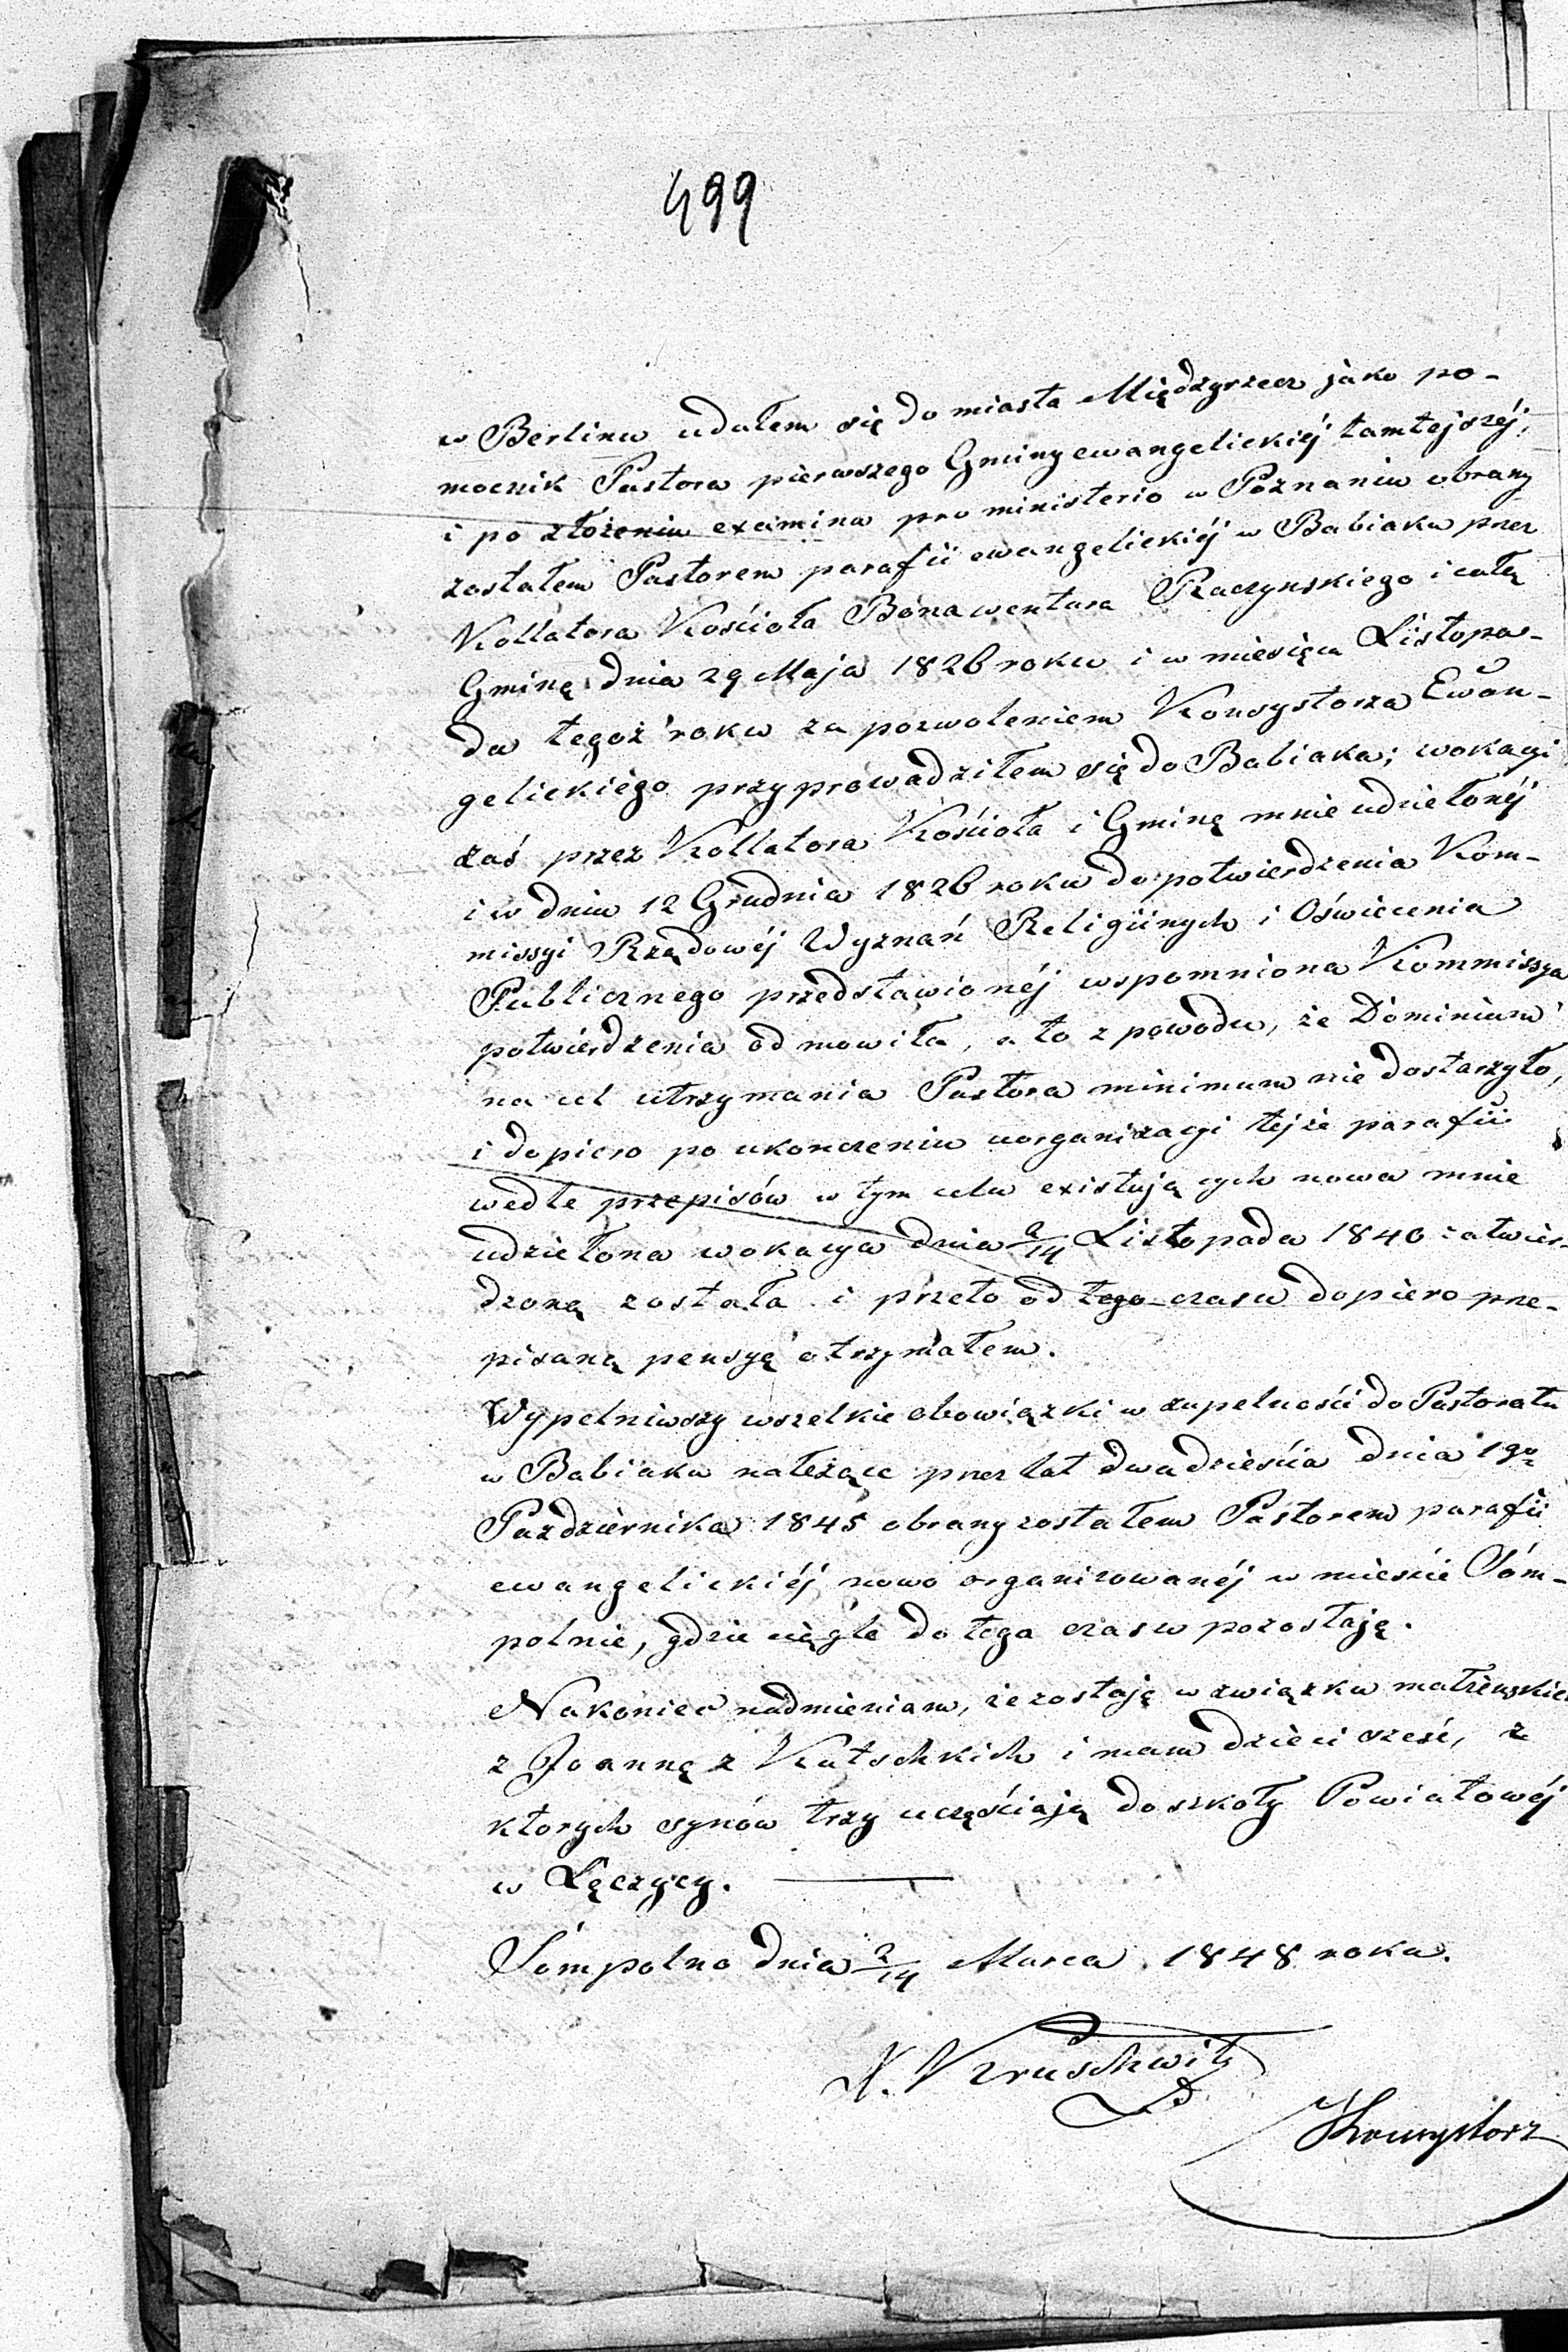 499
w Berlinu udałem się do miasta Międzyrzecz jako po-
mocnik Pastora pierwszego Gminy ewangelickiéj tamtejszéj,
i po złożeniu examina pro ministerio w Poznaniu obrany
zostałem Pastorem parafii ewangelickiéj w Babiaku przez
Kollatora Kościoła Bonawentura Raczynskiego i całą
Gminę dnia 29 Maja 1826 roku i w miesięcu Listopa-
da tegoż roku za pozwoleniem Konsystorza Ewan-
gelickiego przyprowadziłem się do Babiaka; wokacyi
zaś przez Kollatora Kościoła i Gminę mnie udzielonéj
i w dniu 12 Grudnia 1826 roku do potwierdzenia Kom-
missyi Rządowéj Wyznań Religiinych i Oświecenia
Publicznego przedstawionéj wspomniona Kommissya
potwierdzenia odmowiła, a to z powodu, że Dominium
na cel utrzymania Pastora minimum nie dostarzyło,
i dopiero po ukonczeniu uorganizacyi tejże parafii
wedle przepisów w tym celu existujących nowa mnie
udzielona wokacya dnia 2/14 Listopada 1840 zatwier-
dzoną została i przeto od tego czasu dopiero prze-
pisaną pensyą otrzymałem.
Wypełniwszy wszelkie obowiązki w zupełności do Pastoratu
w Babiaku należące przez lat dwadzieścia dnia 1go
Pazdziernika 1845 obrany zostałem Pastorem parafii
ewangelickiéj nowo organizowanéj w mieście Sóm-
polnie, gdzie ciągle do tego czasu pozostaję.
Nakoniec nadmieniam, że zostaję w związku małżenskiem
z Joanną z Kutschkich i mam dzieci sześć, z
ktorych synów trzy uczęściają do szkoły Powiatowéj
w Łęczycy.
Sompolno dnia 2/14 Marca 1848 roku.
X. Kruschwitz
Konsystorz